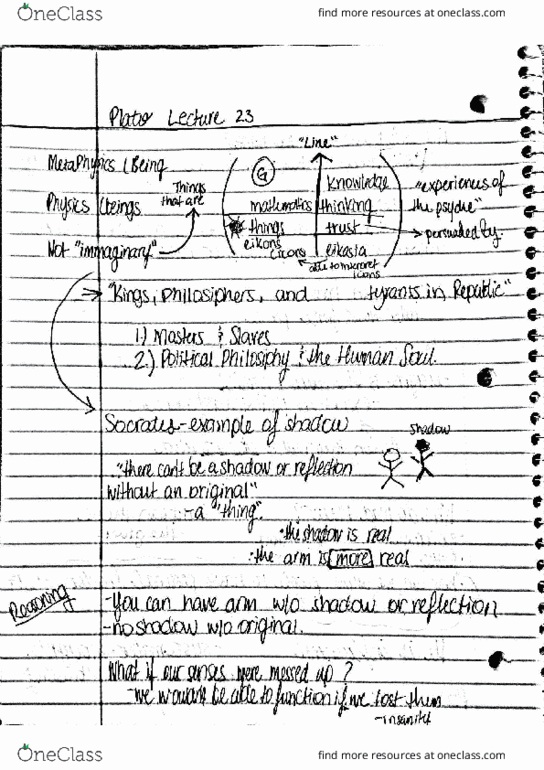 OneClass
find more resources at oneclass.com
Plato Lecture 23
"Line"
MetaPhysics (Being
G
knowledge
"experiences of
Things
that are
Physics (beings
mathematics
thinking
the psyche"
things
trust
persuaded by.
Not "immaginary"
eikons
eikasia
able to interpret
icons
"Kings, Philosiphers, and tyrants in Republic"
1) Masters & Slaves
2.) Political Philosiphy & the Human Soul.
Socrates - example of shadow
shadow
"there can't be a shadow or reflection
without an original"
- a "thing"
• the shadow is real
• the arm is more real
Reasoning
- You can have arm w/o shadow or reflection
- no shadow w/o original.
What if our senses were messed up?
- we wouldn't be able to function if we lost them
OneClass
find more resources at oneclass.com